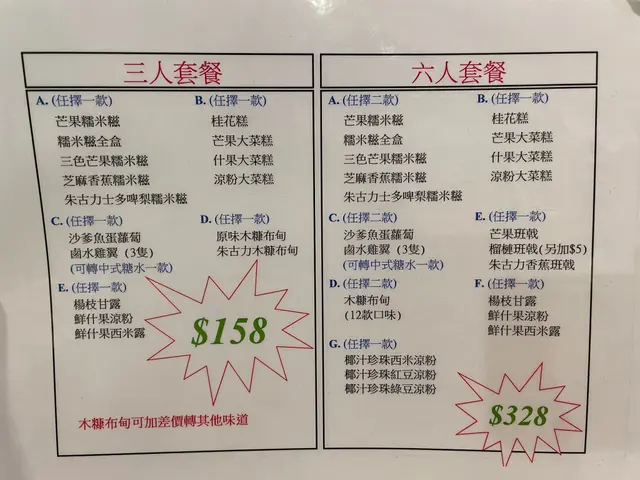 三人套餐
A. (任擇一款)
芒果糯米糍
糯米糍全盒
三色芒果糯米糍
芝麻香蕉糯米糍
朱古力士多啤梨糯米糍
B. (任擇一款)
桂花糕
芒果大菜糕
什果大菜糕
涼粉大菜糕
C. (任擇一款)
沙爹魚蛋蘿蔔
鹵水雞翼 (3隻)
(可轉中式糖水一款)
D. (任擇一款)
原味木糠布甸
朱古力木糠布甸
E. (任擇一款)
楊枝甘露
鮮什果涼粉
鮮什果西米露
$158
木糠布甸可加差價轉其他味道
六人套餐
A. (任擇二款)
芒果糯米糍
糯米糍全盒
三色芒果糯米糍
芝麻香蕉糯米糍
朱古力士多啤梨糯米糍
B. (任擇一款)
桂花糕
芒果大菜糕
什果大菜糕
涼粉大菜糕
C. (任擇二款)
沙爹魚蛋蘿蔔
鹵水雞翼 (3隻)
(可轉中式糖水一款)
E. (任擇一款)
芒果班戟
榴槤班戟(另加$5)
朱古力香蕉班戟
D. (任擇二款)
木糠布甸
(12款口味)
F. (任擇一款)
楊枝甘露
鮮什果涼粉
鮮什果西米露
G. (任擇一款)
椰汁珍珠西米涼粉
椰汁珍珠紅豆涼粉
椰汁珍珠綠豆涼粉
$328